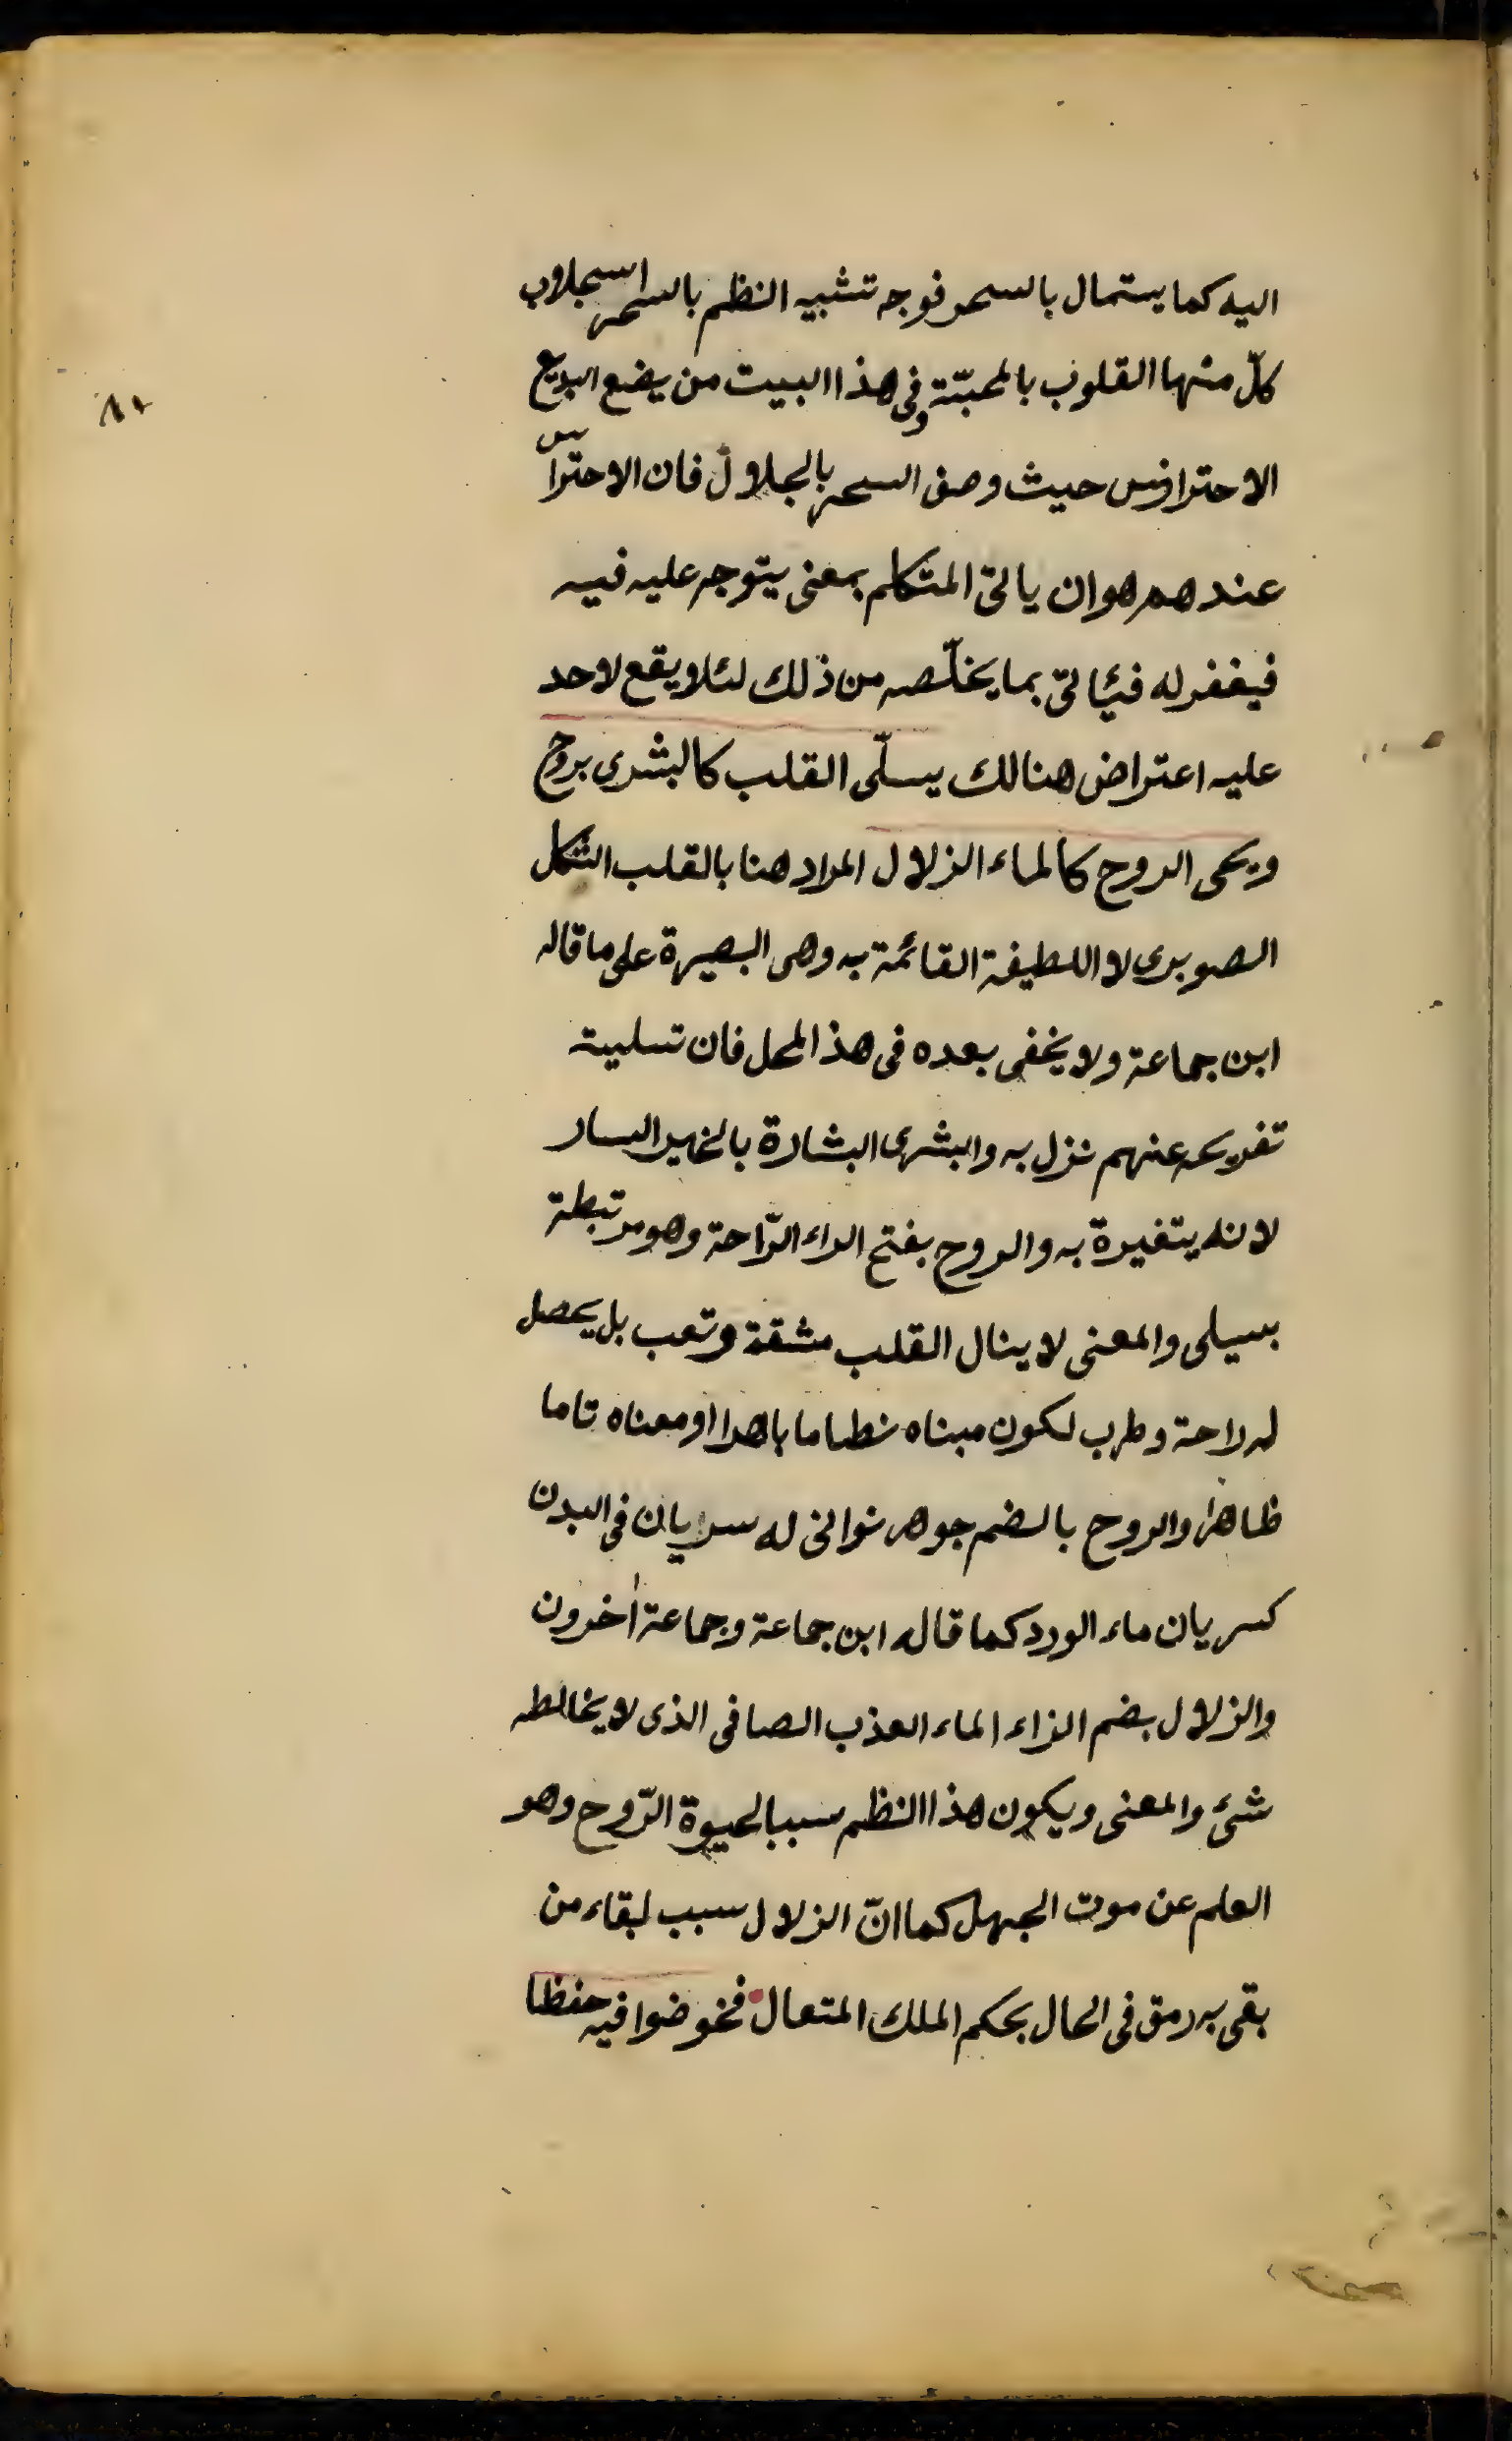 اليه كما يستمال بالسحر فوجه تشبيه النظم بالسحر استجلاب
كلّ منها القلوب بالمحبّة وفى هذا البيت من يضع البديع
الاحتراس حيث وصف السحر بالجلال فان الاحتراس
عندهم هو ان ياتى المتكلم بمعنى يتوجه عليه فيه
فيغفر له فيئاتى بما يخلّصه من ذلك لئلا يقع لاحد
عليه اعتراض هنالك يسلّى القلب كالبشرى بروح
ويحى الروح كالماء الزلال المراد هنا بالقلب الشكل
الصوبرى لا اللطيفة القائمة به وهى البصيرة على ما قاله
ابن جماعة ولا يخفى بعده فى هذ المحل فان تسلية
تفريحه عنهم نزل به والبشرى البشارة بالخير السار
لانه يتغيرة به والروح بفتح الراء الرّاحة وهو مرتبطة
بسيلى والمعنى لا ينال القلب مشقة وتعب بل يحصل
له راحة وطرب لكون مبناه نظاما باهرا ومعناه تاما
ظاهرا والروح بالضم جوهر نوانى له سريان فى البدن
كسريان ماء الورد كما قاله ابن جماعة وجماعة اخرون
والزلال بضم الزاء الماء العذب الصافى الذى لا يخالطه
شئ والمعنى ويكون هذا النظم سببا لحيوة الرّوح وهو
العلم عن موت الجهل كما انّ الزلال سبب لبقاء من
بقى به رمق فى الحال بحكم الملك المتعال فخوضوا فيه حفظا